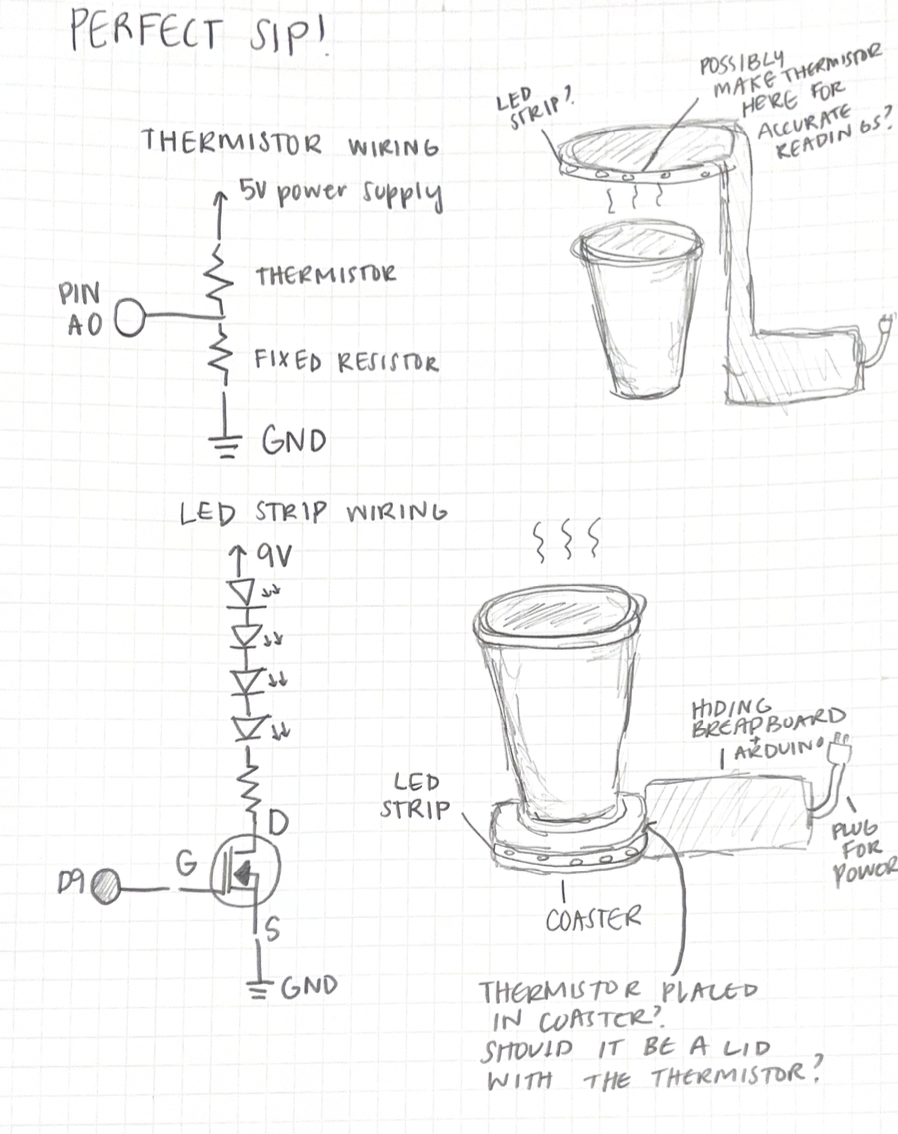 PERFECT SIP!
THERMISTOR WIRING
5V power supply
THERMISTOR
PIN
A0
FIXED RESISTOR
GND
LED
STRIP?
POSSIBLY
MAKE THERMISTOR
HERE FOR
ACCURATE
READINGS?
LED STRIP WIRING
9V
D
G
D9
S
GND
HIDING
BREADBOARD
+
ARDUINO
LED
STRIP
PLUG
FOR
POWER
COASTER
THERMISTOR PLACED
IN COASTER?
SHOULD IT BE A LID
WITH THE THERMISTOR?